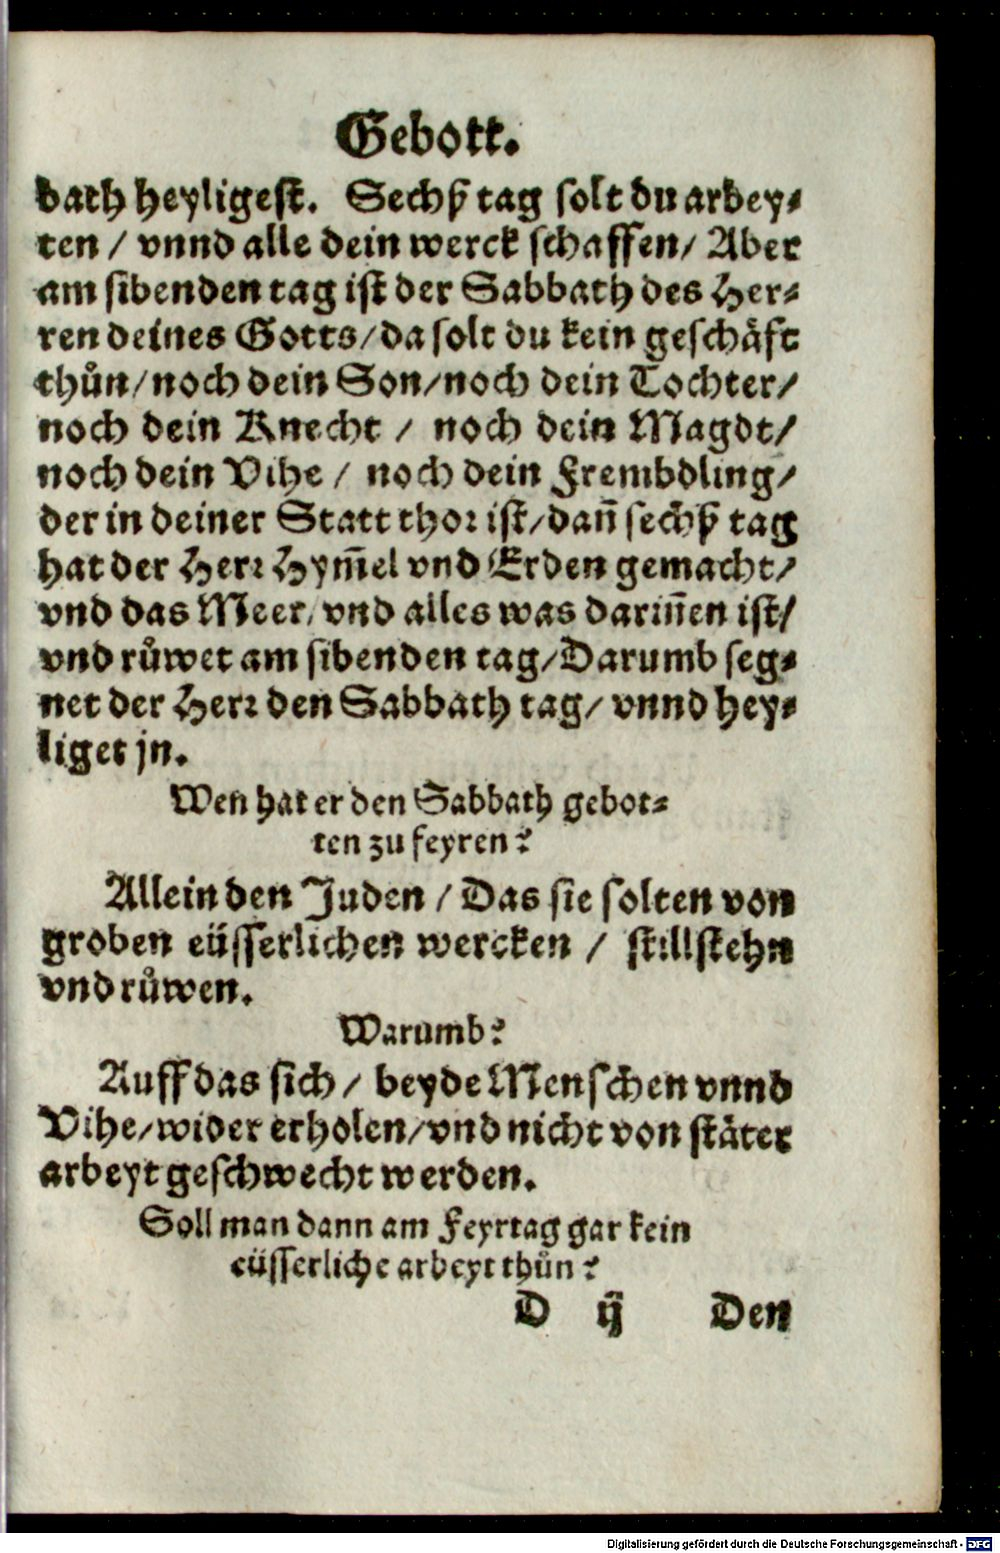 Gebott.
bath heyligest. Sechß tag solt du arbey⸗
ten / vnnd alle dein werck schaffen / Aber
am sibenden tag ist der Sabbath des Her⸗
ren deines Gotts / da solt du kein geschäft
thůn / noch dein Son / noch dein Tochter /
noch dein Knecht / noch dein Magdt /
noch dein Vihe / noch dein Frembdling /
der in deiner Statt thor ist / dañ sechß tag
hat der Herr Hym̃el vnd Erden gemacht /
vnd das Meer / vnd alles was dariñen ist /
vnd růwet am sibenden tag / Darumb seg⸗
net der Herr den Sabbath tag / vnnd hey⸗
liget jn.
Wen hat er den Sabbath gebot⸗
ten zu feyren?
Allein den Juden / Das sie solten von
groben eüsserlichen wercken / stillstehn
vnd růwen.
Warumb?
Auff das sich / beyde Menschen vnnd
Vihe / wider erholen / vnd nicht von stäter
arbeyt geschwecht werden.
Soll man dann am Feyrtag gar kein
eüsserliche arbeyt thůn?
D ij Den
Digitalisierung gefördert durch die Deutsche Forschungsgemeinschaft - DFG